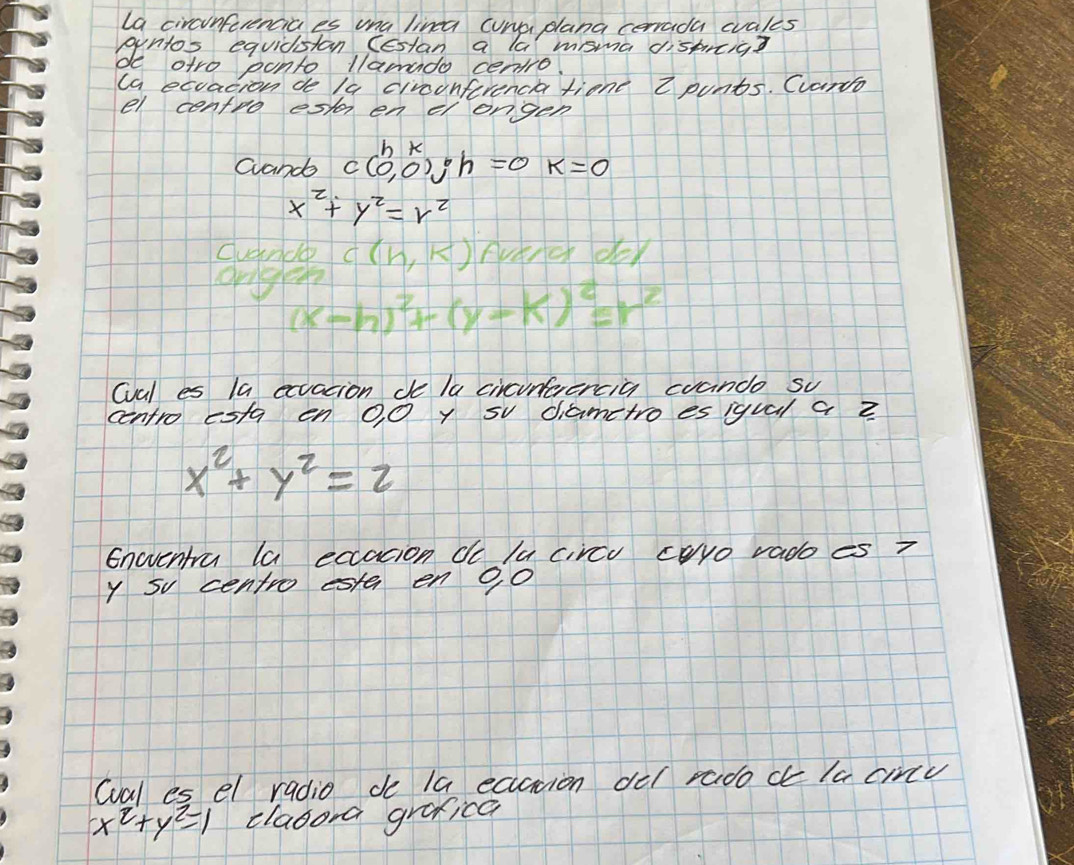 La circunferencia es una linea curva plana cerrada cuales
puntos equidistan (Estan a la misma distancia)
de otro punto llamado centro.
La ecuacion de la circunferencia tiene 2 puntos. Cuando
el centro este en el origen
h K
Cuando C(0,0); h=0 K=0
x²+y²=r²
Cuando C(h,K) fuera del
origen
(x-h)²+(y-K)²=r²
Cual es la ecuacion de la circunferencia cuando su
centro esta en 0,0 y su diametro es igual a 2
x²+y²=2
Encuentra la ecuacion de la circu cuyo rado es 7
y su centro esta en 0,0
Cual es el radio de la ecuacion del rado de la circu
x²+y²=1 elabora grafica